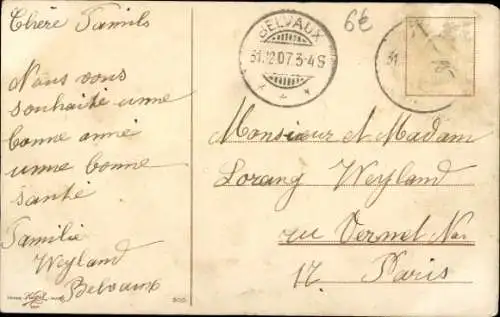 Chère Famils
Nous vous
souhaite unne
bonne anné
unne bonne
santé
Familie
Weyland
Belvaux
BELVAUX
31.12.07.3-4S
62
31
Monsieur et Madam
Lorang Weyland
ru Vernet No.
17. Paris
500